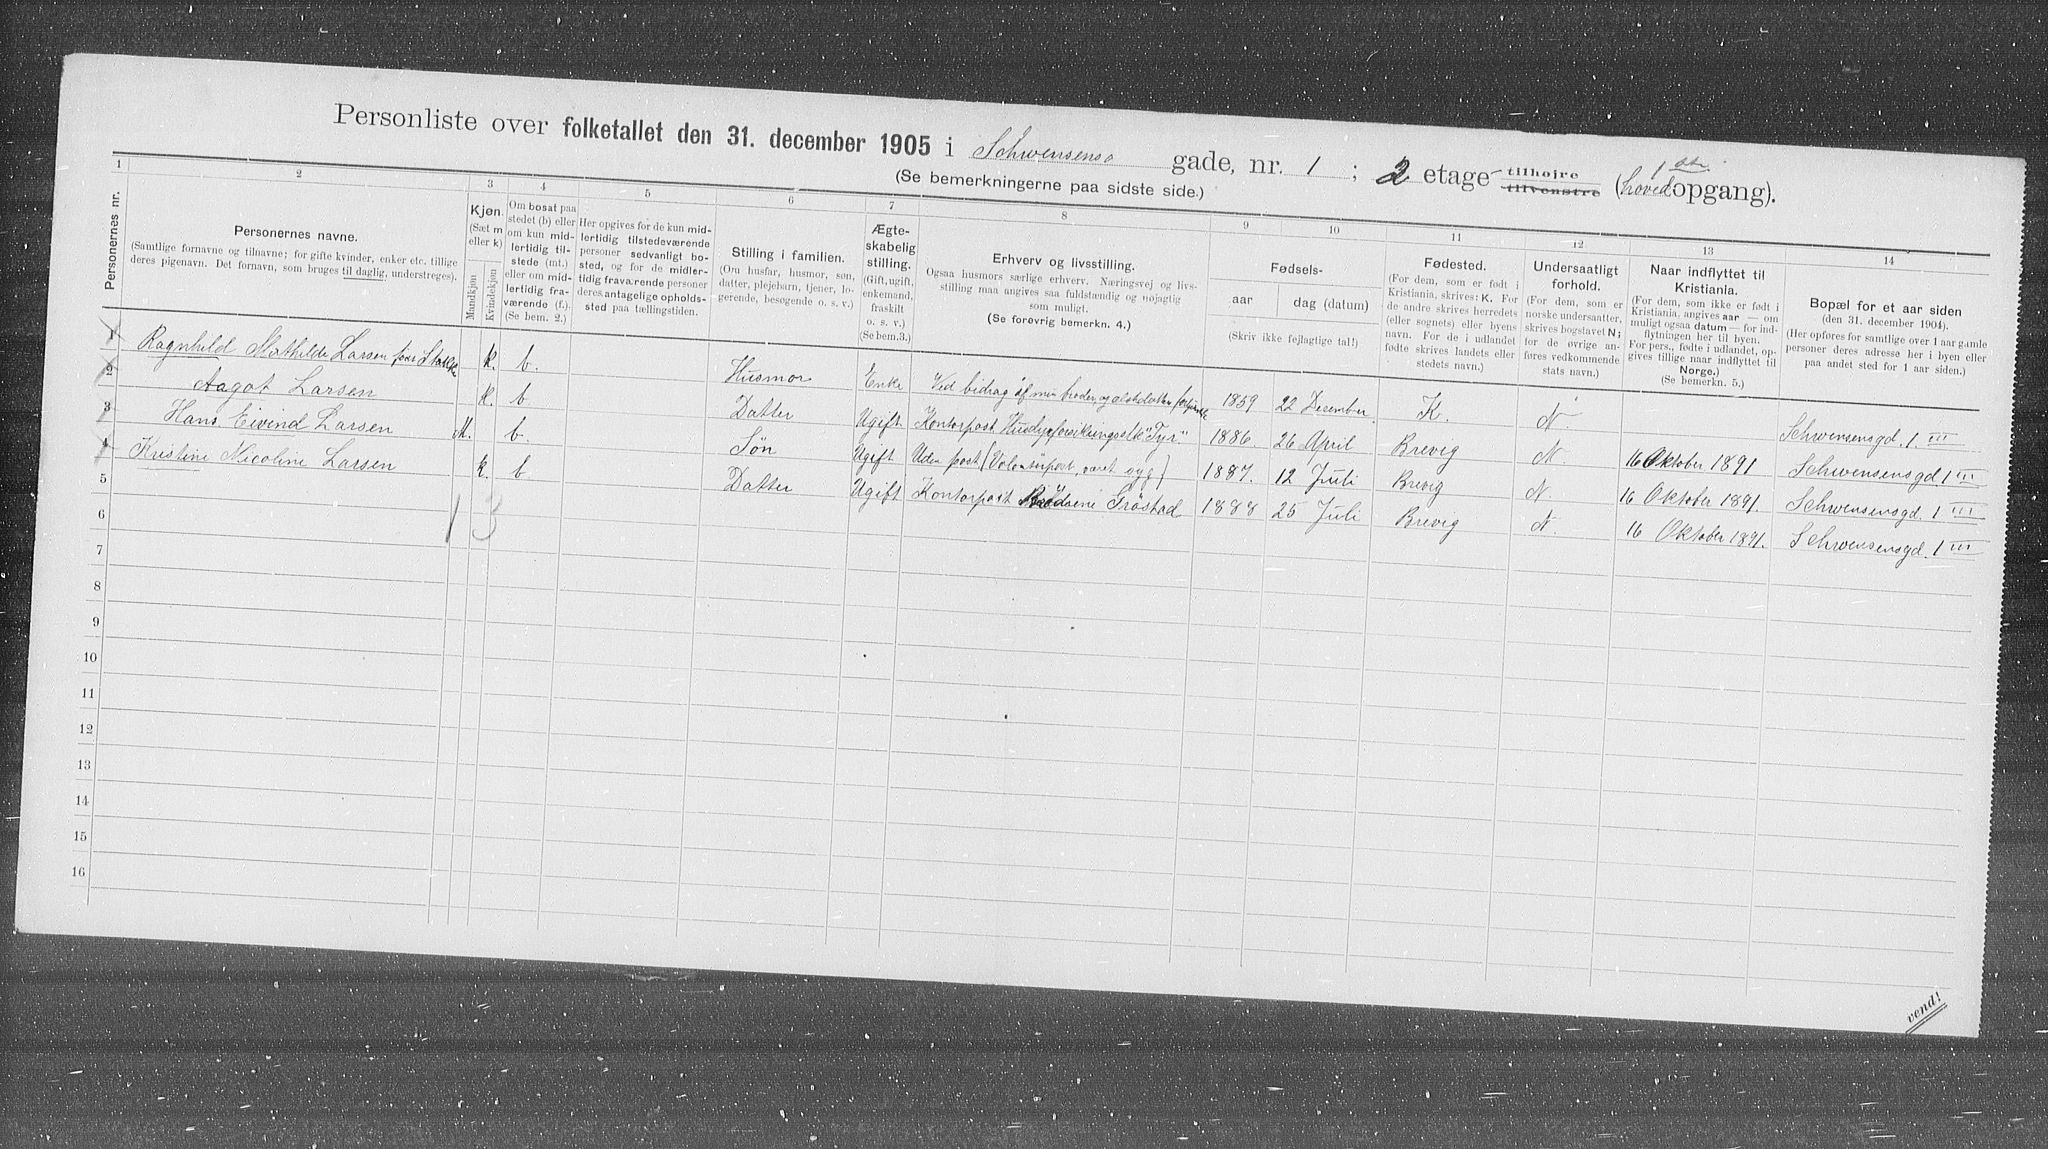 Personliste over folketallet den 31. december 1905 i Schwensens gade, nr. 1 ; 2 etage tilhøjre tilvenstre (hovedopgang).
(Se bemerkningerne paa sidste side.)
1 2 3 4 5 6 7 8 9 10 11 12 13 14
Personernes nr.
Personernes navne.
(Samtlige fornavne og tilnavne; for gifte kvinder, enker etc. tillige
deres pigenavn. Det fornavn, som bruges til daglig, understreges).
Kjøn.
(Sæt m
eller k)
Mandkjøn
Kvindekjøn
Om bosat paa
stedet (b) eller
om kun mid-
lertidig til-
stede (mt.)
eller om mid-
lertidig fra-
værende (f.).
(Se bem. 2.)
Her opgives for de kun mid-
lertidig tilstedeværende
personer sedvanligt bo-
sted, og for de midler-
tidig fraværende personer
deres antagelige opholds-
sted paa tællingstiden.
Stilling i familien.
(Om husfar, husmor, søn,
datter, plejebarn, tjener, lo-
gerende, besøgende o. s. v.)
Ægte-
skabelig
stilling.
(Gift, ugift,
enkemand,
fraskilt
o. s. v.)
(Se bem. 3.)
Erhverv og livsstilling.
Ogsaa husmors særlige erhverv. Næringsvej og livs-
stilling maa angives saa fuldstændig og nøjagtig
som muligt.
(Se forøvrig bemerkn. 4.)
Fødsels-
aar
dag (datum)
(Skriv ikke fejlagtige tal!)
Fødested.
(For dem, som er født i
Kristiania, skrives: K. For
de andre skrives herredets
(eller sognets) eller byens
navn. For de i udlandet
fødte skrives landets eller
stedets navn.)
Undersaatligt
forhold.
(For dem, som er
norske undersaatter,
skrives bogstavet N;
for de øvrige an-
føres vedkommende
stats navn.)
Naar indflyttet til
Kristiania.
(For dem, som ikke er født i
Kristiania, angives aar — om
muligt ogsaa datum — for ind-
flytningen her til byen.
For pers., fødte i udlandet, op-
gives tillige naar indflyttet til
Norge.)
(Se bemerkn. 5.)
Bopæl for et aar siden
(den 31. december 1904).
(Her opføres for samtlige over 1 aar gamle
personer deres adresse her i byen eller
paa andet sted for 1 aar siden.)
1 Ragnhild Mathilde Larsen k. b. Husmor Enke Ved bidrag af min broder og 1859 22 December K. N. Schwensensgd. 1 III
2 Aagot Larsen k. b Datter Ugift Kontorpost "Tyr" 1886 26 April Brevig N. 16 Oktober 1891 Schwensensgd 1 III
3 Hans Eivind Larsen M. b. Søn Ugift Uden post (været syg) 1887. 12 Juli Brevig N. 16 Oktober 1891. Schwensensgd. 1 III
4 Kristine Nicoline Larsen k. b Datter Ugift Kontorpost 1888 25 Juli Brevig N. 16 Oktober 1891. Schwensensgd. 1 III
5
6
1 3
7
8
9
10
11
12
13
14
15
16
vend!